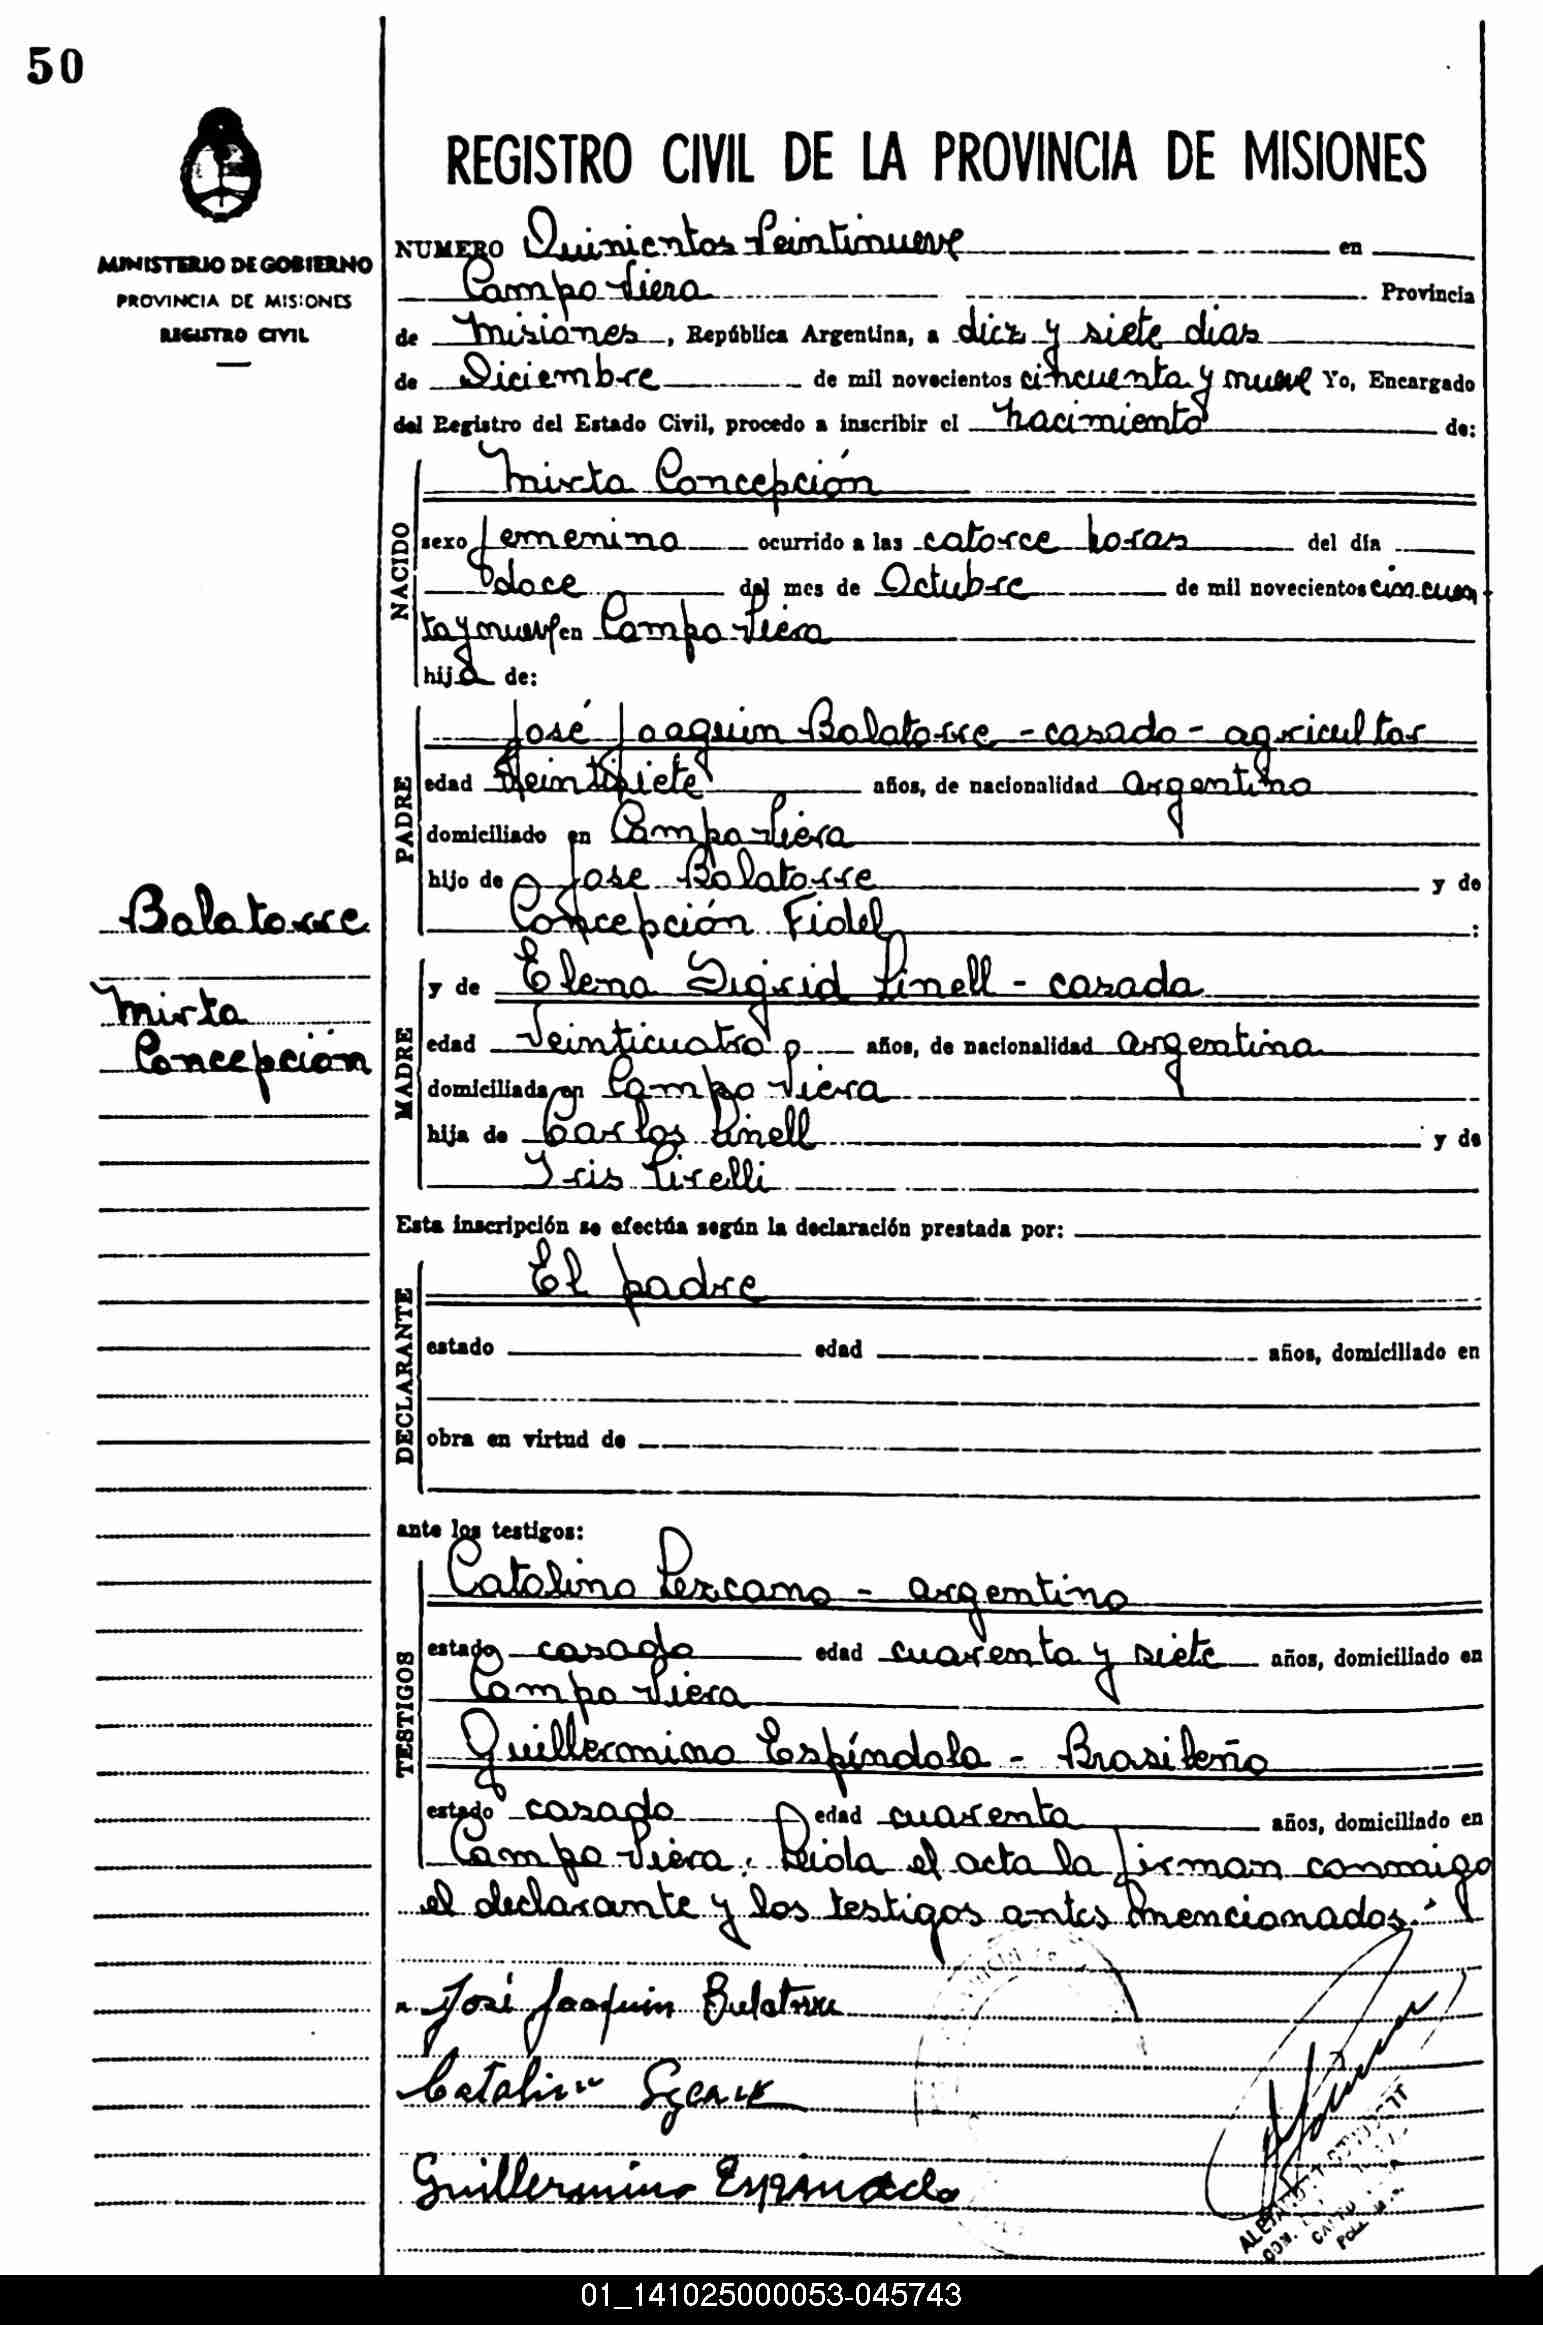 50
REGISTRO CIVIL DE LA PROVINCIA DE MISIONES
MINISTERIO DE GOBIERNO
PROVINCIA DE MISIONES
REGISTRO CIVIL
NUMERO Quinientos Veintinueve en
Campo Viera Provincia
de Misiones, República Argentina, a diez y siete dias
de Diciembre de mil novecientos cincuenta y nueve Yo, Encargado
del Registro del Estado Civil, procedo a inscribir el nacimiento de:
NACIDO
Mirta Concepción
sexo femenino ocurrido a las catorce horas del día
doce del mes de Octubre de mil novecientos cincuen
ta y nueve en Campo Viera
hija de:
PADRE
José Joaquin Balatorre - casado - agricultor
edad Veintisiete años, de nacionalidad argentino
domiciliado en Campo Viera
hijo de José Balatorre y de
Concepción Fidel :
Balatorre
Mirta
Concepción
MADRE
y de Elena Sigrid Linell - casada
edad Veinticuatro años, de nacionalidad argentina
domiciliada en Campo Viera
hija de Carlos Linell y de
Iris Lirelli
Esta inscripción se efectúa según la declaración prestada por:
DECLARANTE
El padre
estado edad años, domiciliado en
obra en virtud de
ante los testigos:
TESTIGOS
Catalino Lezcano - argentino
estado casado edad cuarenta y siete años, domiciliado en
Campo Viera
Guillermino Espíndola - Brasileño
estado casado edad cuarenta años, domiciliado en
Campo Viera. Leida el acta la firman conmigo
el declarante y los testigos antes mencionados.-
José Joaquin
Catalino
Guillermino
01_141025000053-045743